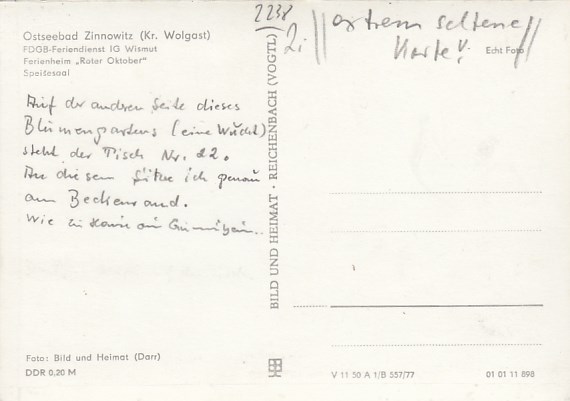 Ostseebad Zinnowitz (Kr. Wolgast)
FDGB-Feriendienst IG Wismut
Ferienheim „Roter Oktober"
Speisesaal
Auf der anderen Seite dieses
Blumengartens (eine Wucht)
steht der Tisch Nr. 22.
An diesem Sitze ich genau
am Beckenrand.
Wie zu Hause am
Foto: Bild und Heimat (Darr)
DDR 0,20 M
BILD UND HEIMAT · REICHENBACH (VOGTL)
2238
extrem seltene
Karte!!
Echt Foto
V 11 50 A 1/B 557/77
01 01 11 898